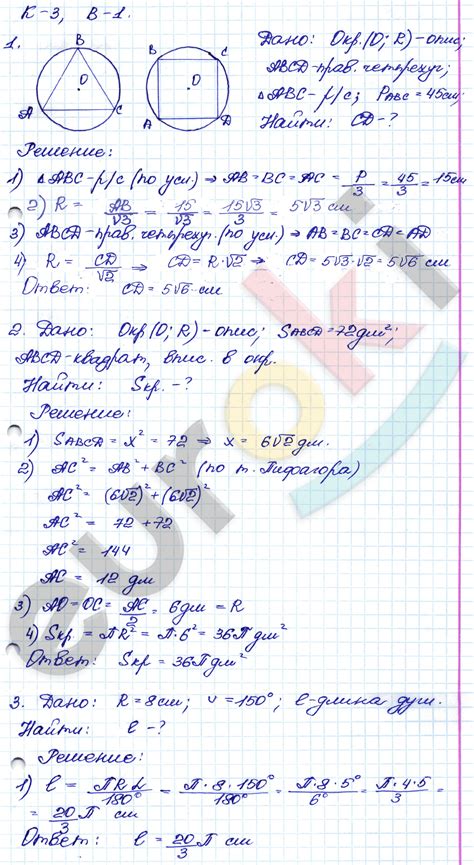 К-3, В-1.
1.
B
O
A
C
B
C
O
A
D
Дано: Окр.(O; R) – опис;
ABCD – прав. четырехуг.;
△ABC – р/с; P_ABC = 45 см;
Найти: CD – ?
Решение:
1) △ABC – р/с (по усл.) ⇒ AB = BC = AC = P/3 = 45/3 = 15 см
2) R = AB/√3 = 15/√3 = 15√3/3 = 5√3 см
3) ABCD – прав. четырехуг. (по усл.) ⇒ AB = BC = CD = AD
4) R = CD/√2 ⇒ CD = R·√2 ⇒ CD = 5√3·√2 = 5√6 см
Ответ: CD = 5√6 см
2. Дано: Окр(O; R) – опис; S_ABCD = 72 дм²;
ABCD – квадрат, впис. в окр.
Найти: Sкр. – ?
Решение:
1) S_ABCD = x² = 72 ⇒ x = 6√2 дм.
2) AC² = AB² + BC² (по т. Пифагора)
AC² = (6√2)² + (6√2)²
AC² = 72 + 72
AC² = 144
AC = 12 дм
3) AO = OC = AC/2 = 6 дм = R
4) Sкр. = ПR² = П·6² = 36П дм²
Ответ: Sкр. = 36П дм²
3. Дано: R = 8 см; ∪ = 150°; ℓ – длина дуги.
Найти: ℓ – ?
Решение:
1) ℓ = ПRα/180° = П·8·150°/180° = П·8·5°/6° = П·4·5/3 =
= 20/3 П см
Ответ: ℓ = 20/3 П см
euroki